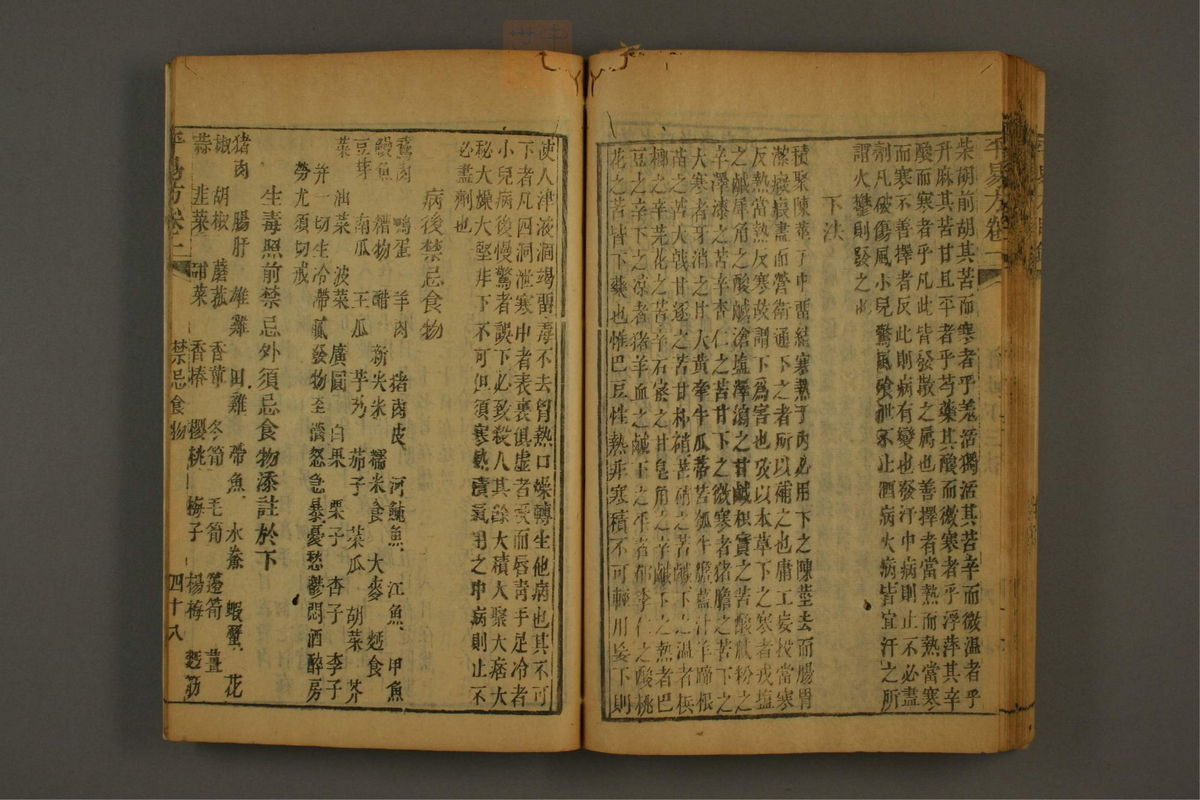 柴胡前胡其苦而寒者乎羗活獨活其苦辛而微温者乎
升麻其苦甘且平者乎芍藥其酸而微寒者乎浮萍其辛
酸而寒者乎凡此皆發散之属也善擇者當熱而熱當寒
而寒不善擇者反此則病有變也發汗中病則止不必盡
劑凡破傷風小兒驚風飱泄不止酒病火病皆宜汗之所
謂火鬱則發之也
下法
積聚陳莝于中畱結寒熱于內必用下之陳莝去而腸胃
潔癥瘕盡而營衛通下之者所以補之也庸工妄投當寒
反熱當熱反寒故謂下爲害也攷以本草下之寒者戎塩
之鹹犀角之酸鹹滄塩澤瀉之甘鹹枳實之苦酸膩粉之
辛澤漆之苦辛杏仁之苦甘下之微寒者猪膽之苦下之
大寒者牙消之甘大黄牽牛瓜蒂苦瓠牛膽藍汁羊蹄根
苗之苦大戟甘遂之苦甘朴硝芒硝之苦鹹下之温者梹
榔之辛芫花之苦辛石蜜之甘皂角之辛鹹下之熱者巴
豆之辛下之凉者猪羊血之鹹下之平者郁李仁之酸桃
花之苦皆下藥也惟巴豆性熱非寒積不可輕用妄下則
使人津液涸竭畱毒不去胃熱口燥轉生他病也其不可
下者凡四洞泄寒中者表裏俱虚者厥而唇青手足冷者
小兒病後慢驚者誤下必致殺人其餘大積大聚大痞大
秘大燥大堅非下不可但須寒熱積氣用之中病則止不
必盡劑也
病後禁忌食物
鵞肉 鴨蛋 羊肉 猪肉皮 河魨魚 江魚 甲魚
鰻魚 糟物 醋 新尖米 糯米食 大麥 麪食
豆芽 南瓜 王瓜 芋乃 茄子 菜瓜 胡菜 芥
菜 油菜 波菜 廣圓 白果 栗子 杏子 李子
并一切生冷帶氣發物至嗔怒急暴憂愁鬱悶酒醉房
勞尤須切戒
生毒照前禁忌外須忌食物添註於下
猪肉 腸肝 雄雞 田雞 帶魚 水鮝 蝦蟹 花
椒 胡椒 蘑菰 香蕈 冬筍 毛筍 蓬筍 薑
蒜 韭菜 甜菜 香椿 櫻桃 梅子 楊梅 麪筋
平易方卷二 禁忌食物 四十八